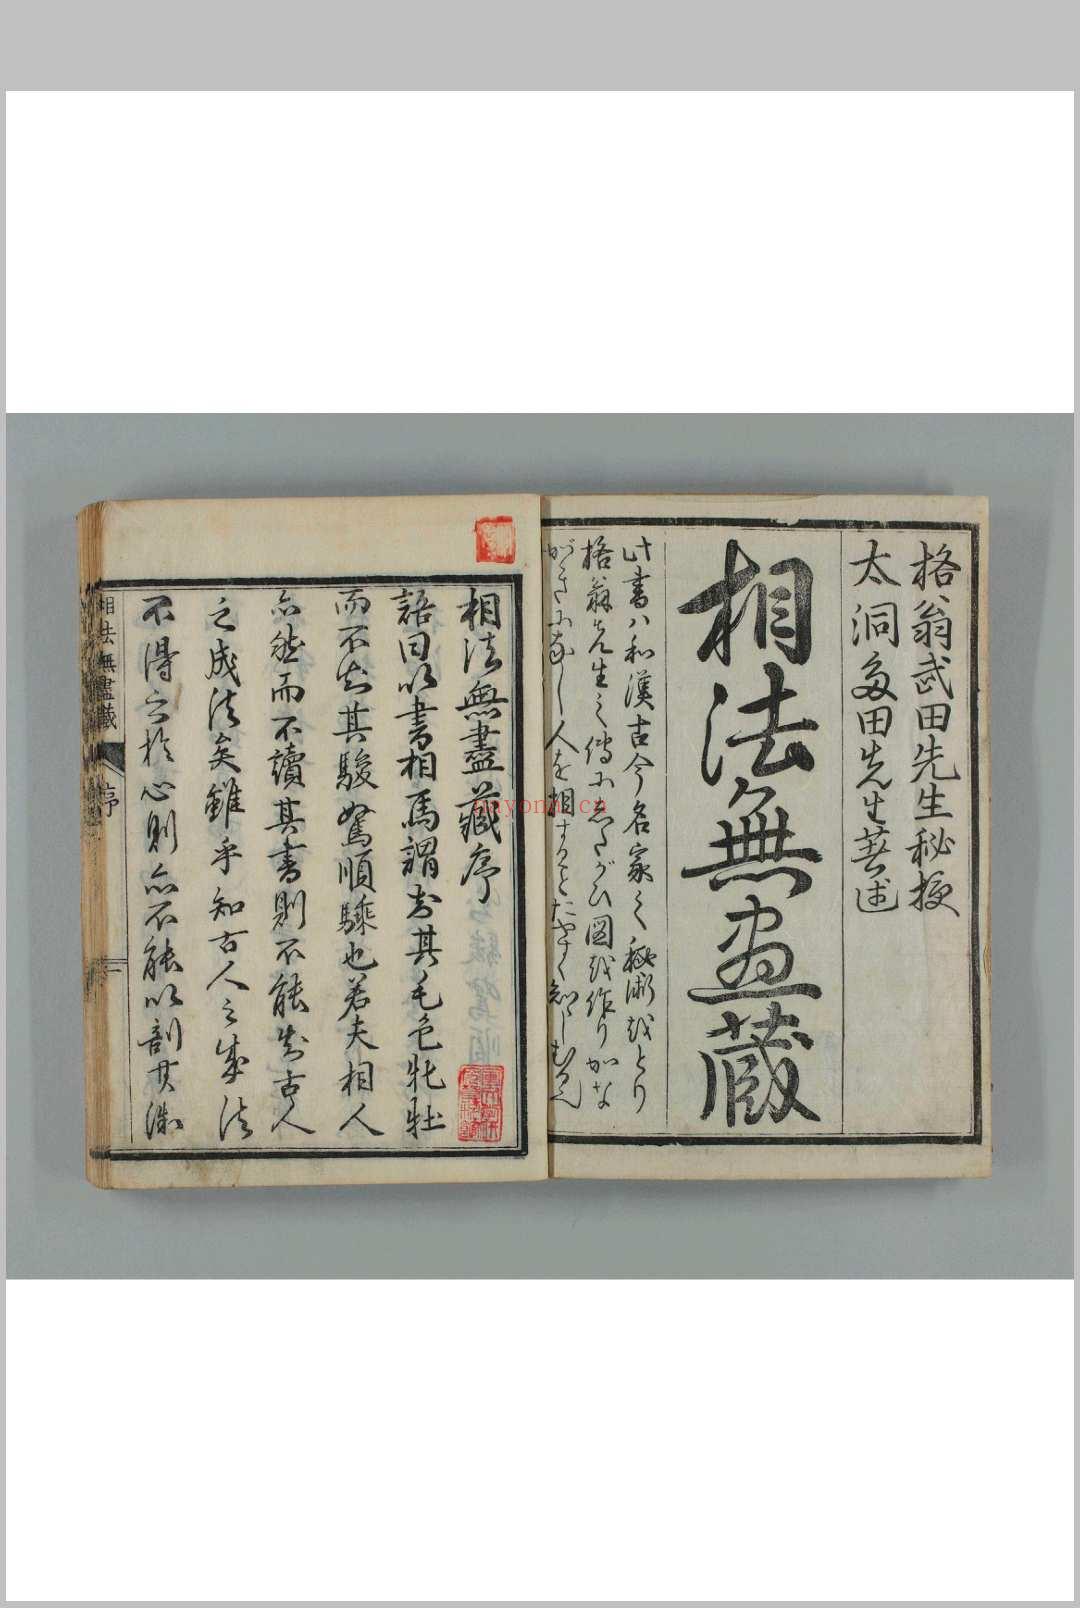 格翁武田先生秘授
太洞多田先生著述
相法無盡蔵
此書ハ和漢古今名家之秘術越とり
格翁先生之傳尓志たがひ図越作りかな
がき尓なし人を相することたやすく知らしむる
相法無盡藏序
語曰以書相馬謂知其毛色牝牡
而不知其駿駑順騄也若夫相人
亦然而不讀其書則不能知古人
之成法矣雖乎知古人之成法
不得之於心則亦不能以剖其
相法無盡藏
序
一
nayona.cn